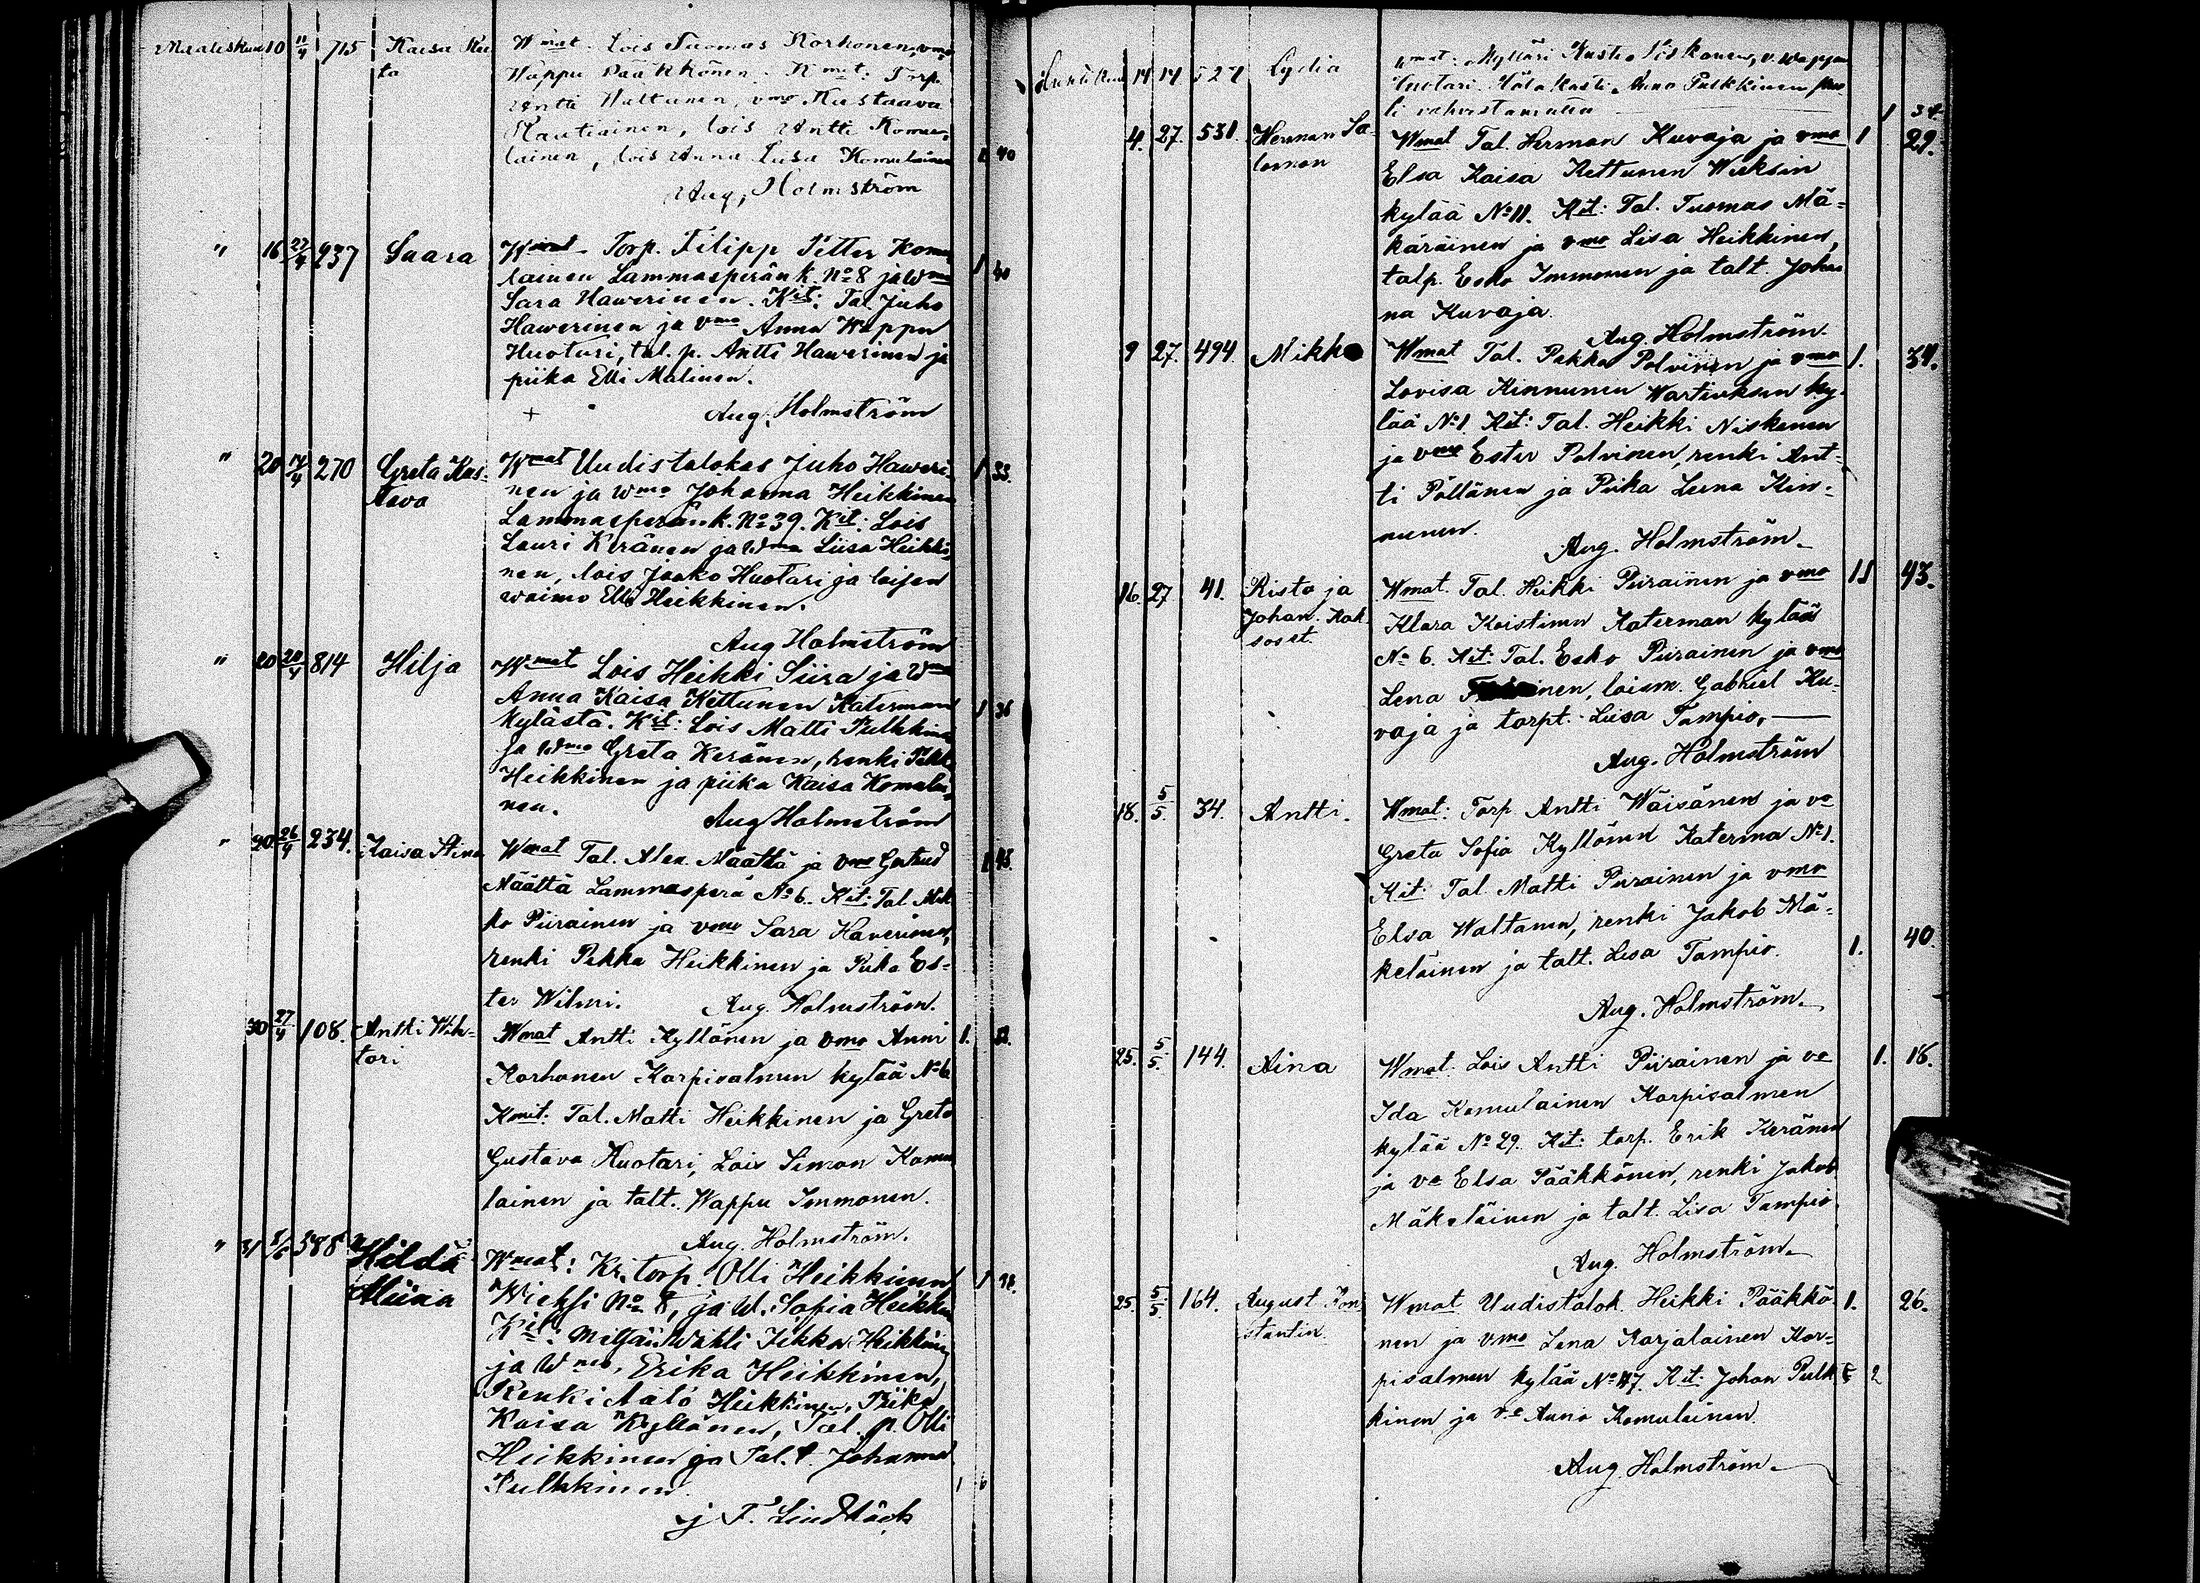 Maaliskuu 10 11/4 715 Kaisa Reeta
Wmat. Lois Tuomas Korhonen, vmo
Wappu Pääkkönen. Kmat: Torp.
Antti Halttunen, vmo Kustaava
Rautiainen, lois Antti Komu-
lainen, lois Anna Liisa Komulainen 1 40
Aug. Holmström
" 16 27/4 237 Saara
Wmat. Torp. Filipp Petter Komu
lainen Lammasperänk. No 8 ja Wmo 1 40
Sara Hawerinen. Kit: Tal. Juho
Hawerinen ja vmo Anna Wappu
Huotari, tal. p. Antti Hawerinen ja
piika Elli Malinen.
+ Aug. Holmström
" 20 14/4 270 Greta Kus-
tava
Wmat Uudistalokas Juho Haweri- 1 33.
nen ja Wmo Johanna Heikkinen
Lammasperänk. No 39. Kit: Lois
Lauri Keränen ja Wmo Liisa Heikki-
nen, lois Jaako Huotari ja loisen
waimo Elli Heikkinen.
Aug Holmström
" 20 20/4 814 Hilja
Wmat Lois Heikki Siira ja Wmo
Anna Kaisa Kettunen Katerman 1 36
kylästä. Kit: Lois Matti Pulkkinen
ja Wmo Greta Keränen, renki Pekka
Heikkinen ja piika Kaisa Komulai-
nen.
Aug Holmström
" 20 26/4 234. Kaisa Stina
Wmat Tal. Alex. Määttä ja vmo Gertrud
Määttä Lammasperä No 6. Kit: Tal. Mik
ko Piirainen ja vmo Sara Haverinen,
renki Pekka Heikkinen ja Piika Es-
ter Wilmi. Aug. Holmström.
30 27/4 108. Antti Wih-
tori
Wmat Antti Kyllönen ja vmo Anni 1.
Korhonen Karpisalmen kylää No 6
Kmit. Tal. Matti Heikkinen ja Greta
Gustava Huotari, Lois Simon Komu
lainen ja talt. Wappu Immonen.
Aug. Holmström.
" 31 5/5 588 Hilda
Miina
Wmat: Kr. torp. Olli Heikkinen
Wieksi No 8, ja W. Sofia Heikkinen
Kit: Mettän Wahti Pekka Heikkinen
ja Wmo, Erika Heikkinen,
Renki Aato Heikkinen, Piika
Kaisa Kyllönen, Tal. p. Olli
Heikkinen ja Tal. t. Johanna
Pulkkinen 1 6
j F. Lindbäck
Huhtikuu 14 14 527 Lydia
Wmat. Mylläri Kusti Niskanen, v. Wappu
Huotari. Hätä kasti. Anna Pulkkinen
vahvistamatta 1 34
4. 27. 531. Herman Sa-
lomon
Wmat Tal. Herman Kuvaja ja vmo 1 29.
Elsa Kaisa Kettunen Wieksin
kylää No 11. Kit: Tal. Tuomas Mä-
käräinen ja vmo Lisa Heikkinen,
talp. Esko Immonen ja talt. Johan
na Kuvaja.
Aug. Holmström.
9 27. 494. Mikko
Wmat Tal. Pekka Polvinen ja vmo 1. 34.
Lovisa Kinnunen Wartiuksen ky-
lää No 1 Kit: Tal. Heikki Niskanen
ja vmo Ester Polvinen, renki Ant-
ti Pöllänen ja Piika Leena Kin-
nunen.
Aug. Holmström.
16. 27 41. Risto ja
Johan. Kak
soset.
Wmat. Tal. Heikki Piirainen ja vmo 11 43.
Klara Koistinen Katerman kylää
No 6. Kit: Tal. Esko Piirainen ja vmo
Lena inen, loism. Gabriel Ku-
vaja ja torpt. Liisa Tampio.
Aug. Holmström
18. 5/5. 34. Antti.
Wmat: Torp. Antti Wäisänen ja vo
Greta Sofia Kyllönen Katerma No 1.
Kit: Tal. Matti Piirainen ja vmo
Elsa Waltanen, renki Jakob Mä-
keläinen ja talt. Lisa Tampio. 1. 40.
Aug. Holmström.
25. 5/5. 144. Aina
Wmat. Lois Antti Piirainen ja vo 1. 18.
Ida Komulainen Karpisalmen
kylää No 29. Kit: torp. Erik Keränen
ja vo Elsa Pääkkönen, renki Jakob
Mäkeläinen ja talt. Lisa Tampio
Aug. Holmström.
25. 5/5. 164. August Kon
stantin.
Wmat Uudistalok. Heikki Pääkkö- 1. 26.
nen ja vmo Lena Karjalainen Kar-
pisalmen kylää No 47. Kit: Johan Pulk 2
kinen ja vo Anna Komulainen.
Aug. Holmström.